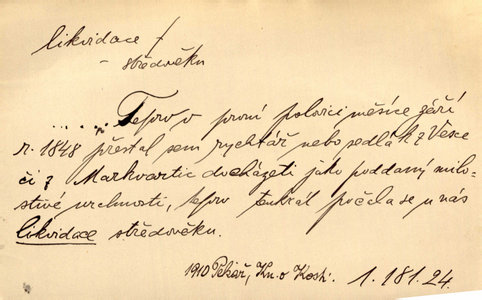 likvidace /
- středověku
..... Teprv v první polovici měsíce září
r. 1848 přestal sem rychtář nebo sedlák z Vesce
či z Markvartic docházeti jako poddaný milo-
stivé vrchnosti, teprv tenkrát počala se u nás
likvidace středověku.
1910 Pekař, Kn. o Kosti. 1. 181. 24.